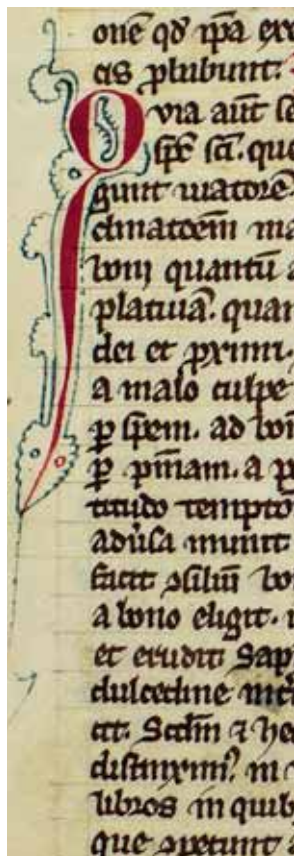 onē qđ ip̄a exc
cis plubunt.
Quia aūt se
sp̄c sc̄i. que
gunt uiatorē.
clinatōem ma
boni quantū a
platiuā. quan
dei et pximi.
a malo culpe
p̲ spem. ad bon
p̲ pn̄iam. a p
titudo tempto
aduˀsa munit
facit ɔsiliū bo
a bono eligit.
et erudit Sap
dulcedine
cit. Scdm ⁊ he
distinximˀ in
libros in quib
que ɔpetunt a